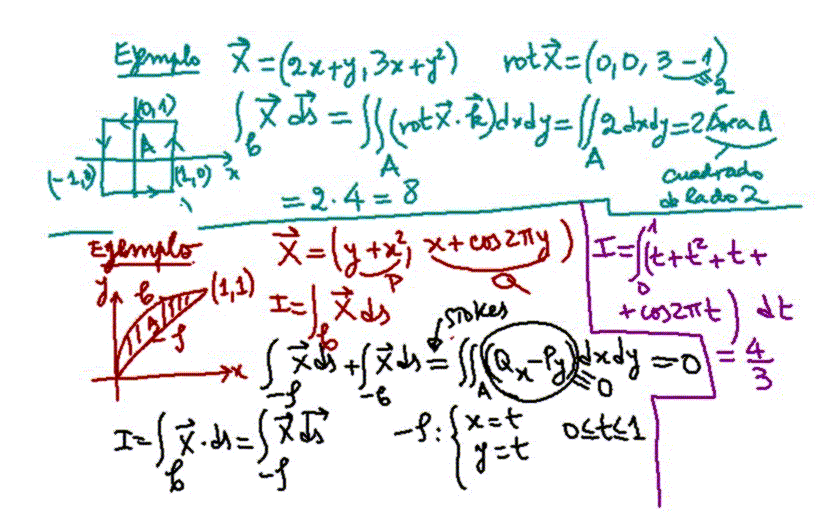 Ejemplo X⃗=(2x+y, 3x+y²) rot X⃗=(0,0,3-1)
2
(0,1)
A
(-1,0) (1,0) x
∫_b X⃗ ds⃗ = ∬_A (rot X⃗·k⃗)dxdy = ∬_A 2dxdy = 2 Area A
cuadrado
de lado 2
= 2·4 = 8
Ejemplo X⃗=(y+x², x+cos2πy)
P Q
y b (1,1)
A
-ρ
x
I=∫_b X⃗ ds
Stokes
∫_-ρ X⃗ds + ∫_-b X⃗ ds = ∬_A (Qx-Py) dxdy = 0
0
I=∫_b X⃗·ds = ∫_-ρ X⃗ ds⃗
-ρ: { x=t
y=t
0≤t≤1
I=∫_0^1 (t+t²+t+
+cos2πt) dt
= 4/3